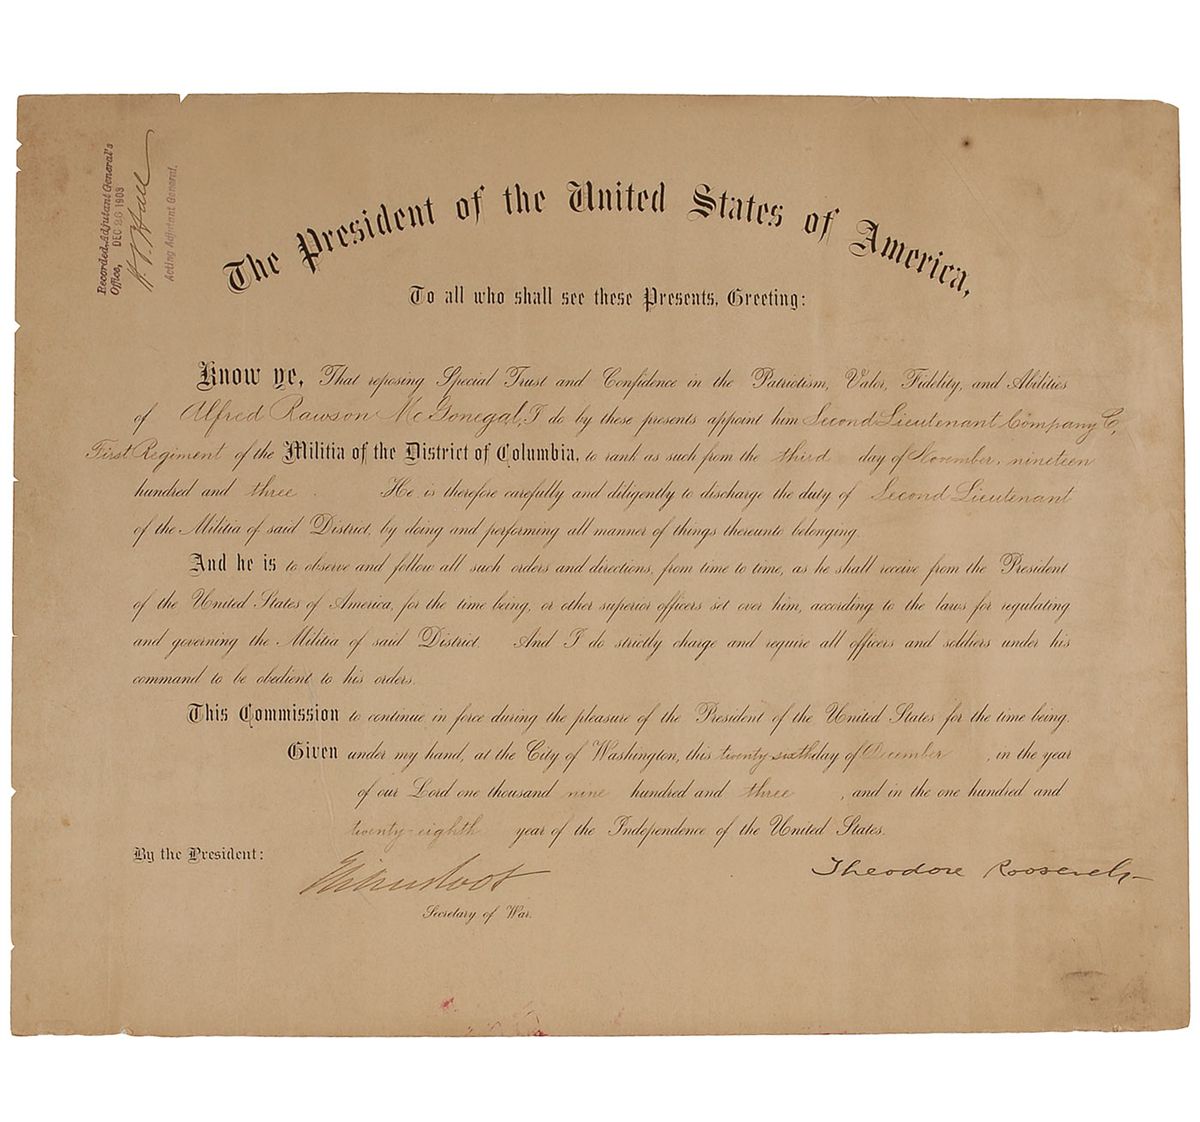 Recorded Adjutant General's
Office, DEC 26 1903
Acting Adjutant General.
The President of the United States of America,
To all who shall see these Presents, Greeting:
Know ye, That reposing Special Trust and Confidence in the Patriotism, Valor, Fidelity, and Abilities
of Alfred Rawson McGonegal, I do by these presents appoint him Second Lieutenant Company C,
First Regiment of the Militia of the District of Columbia, to rank as such from the third day of November, nineteen
hundred and three. He is therefore carefully and diligently to discharge the duty of Second Lieutenant
of the Militia of said District, by doing and performing all manner of things thereunto belonging.
And he is to observe and follow all such orders and directions, from time to time, as he shall receive from the President
of the United States of America, for the time being, or other superior officers set over him, according to the laws for regulating
and governing the Militia of said District. And I do strictly charge and require all officers and soldiers under his
command to be obedient to his orders.
This Commission to continue in force during the pleasure of the President of the United States for the time being.
Given under my hand, at the City of Washington, this twenty sixth day of December, in the year
of our Lord one thousand nine hundred and three, and in the one hundred and
twenty-eighth year of the Independence of the United States.
By the President:
Elihu Root
Theodore Roosevelt
Secretary of War.